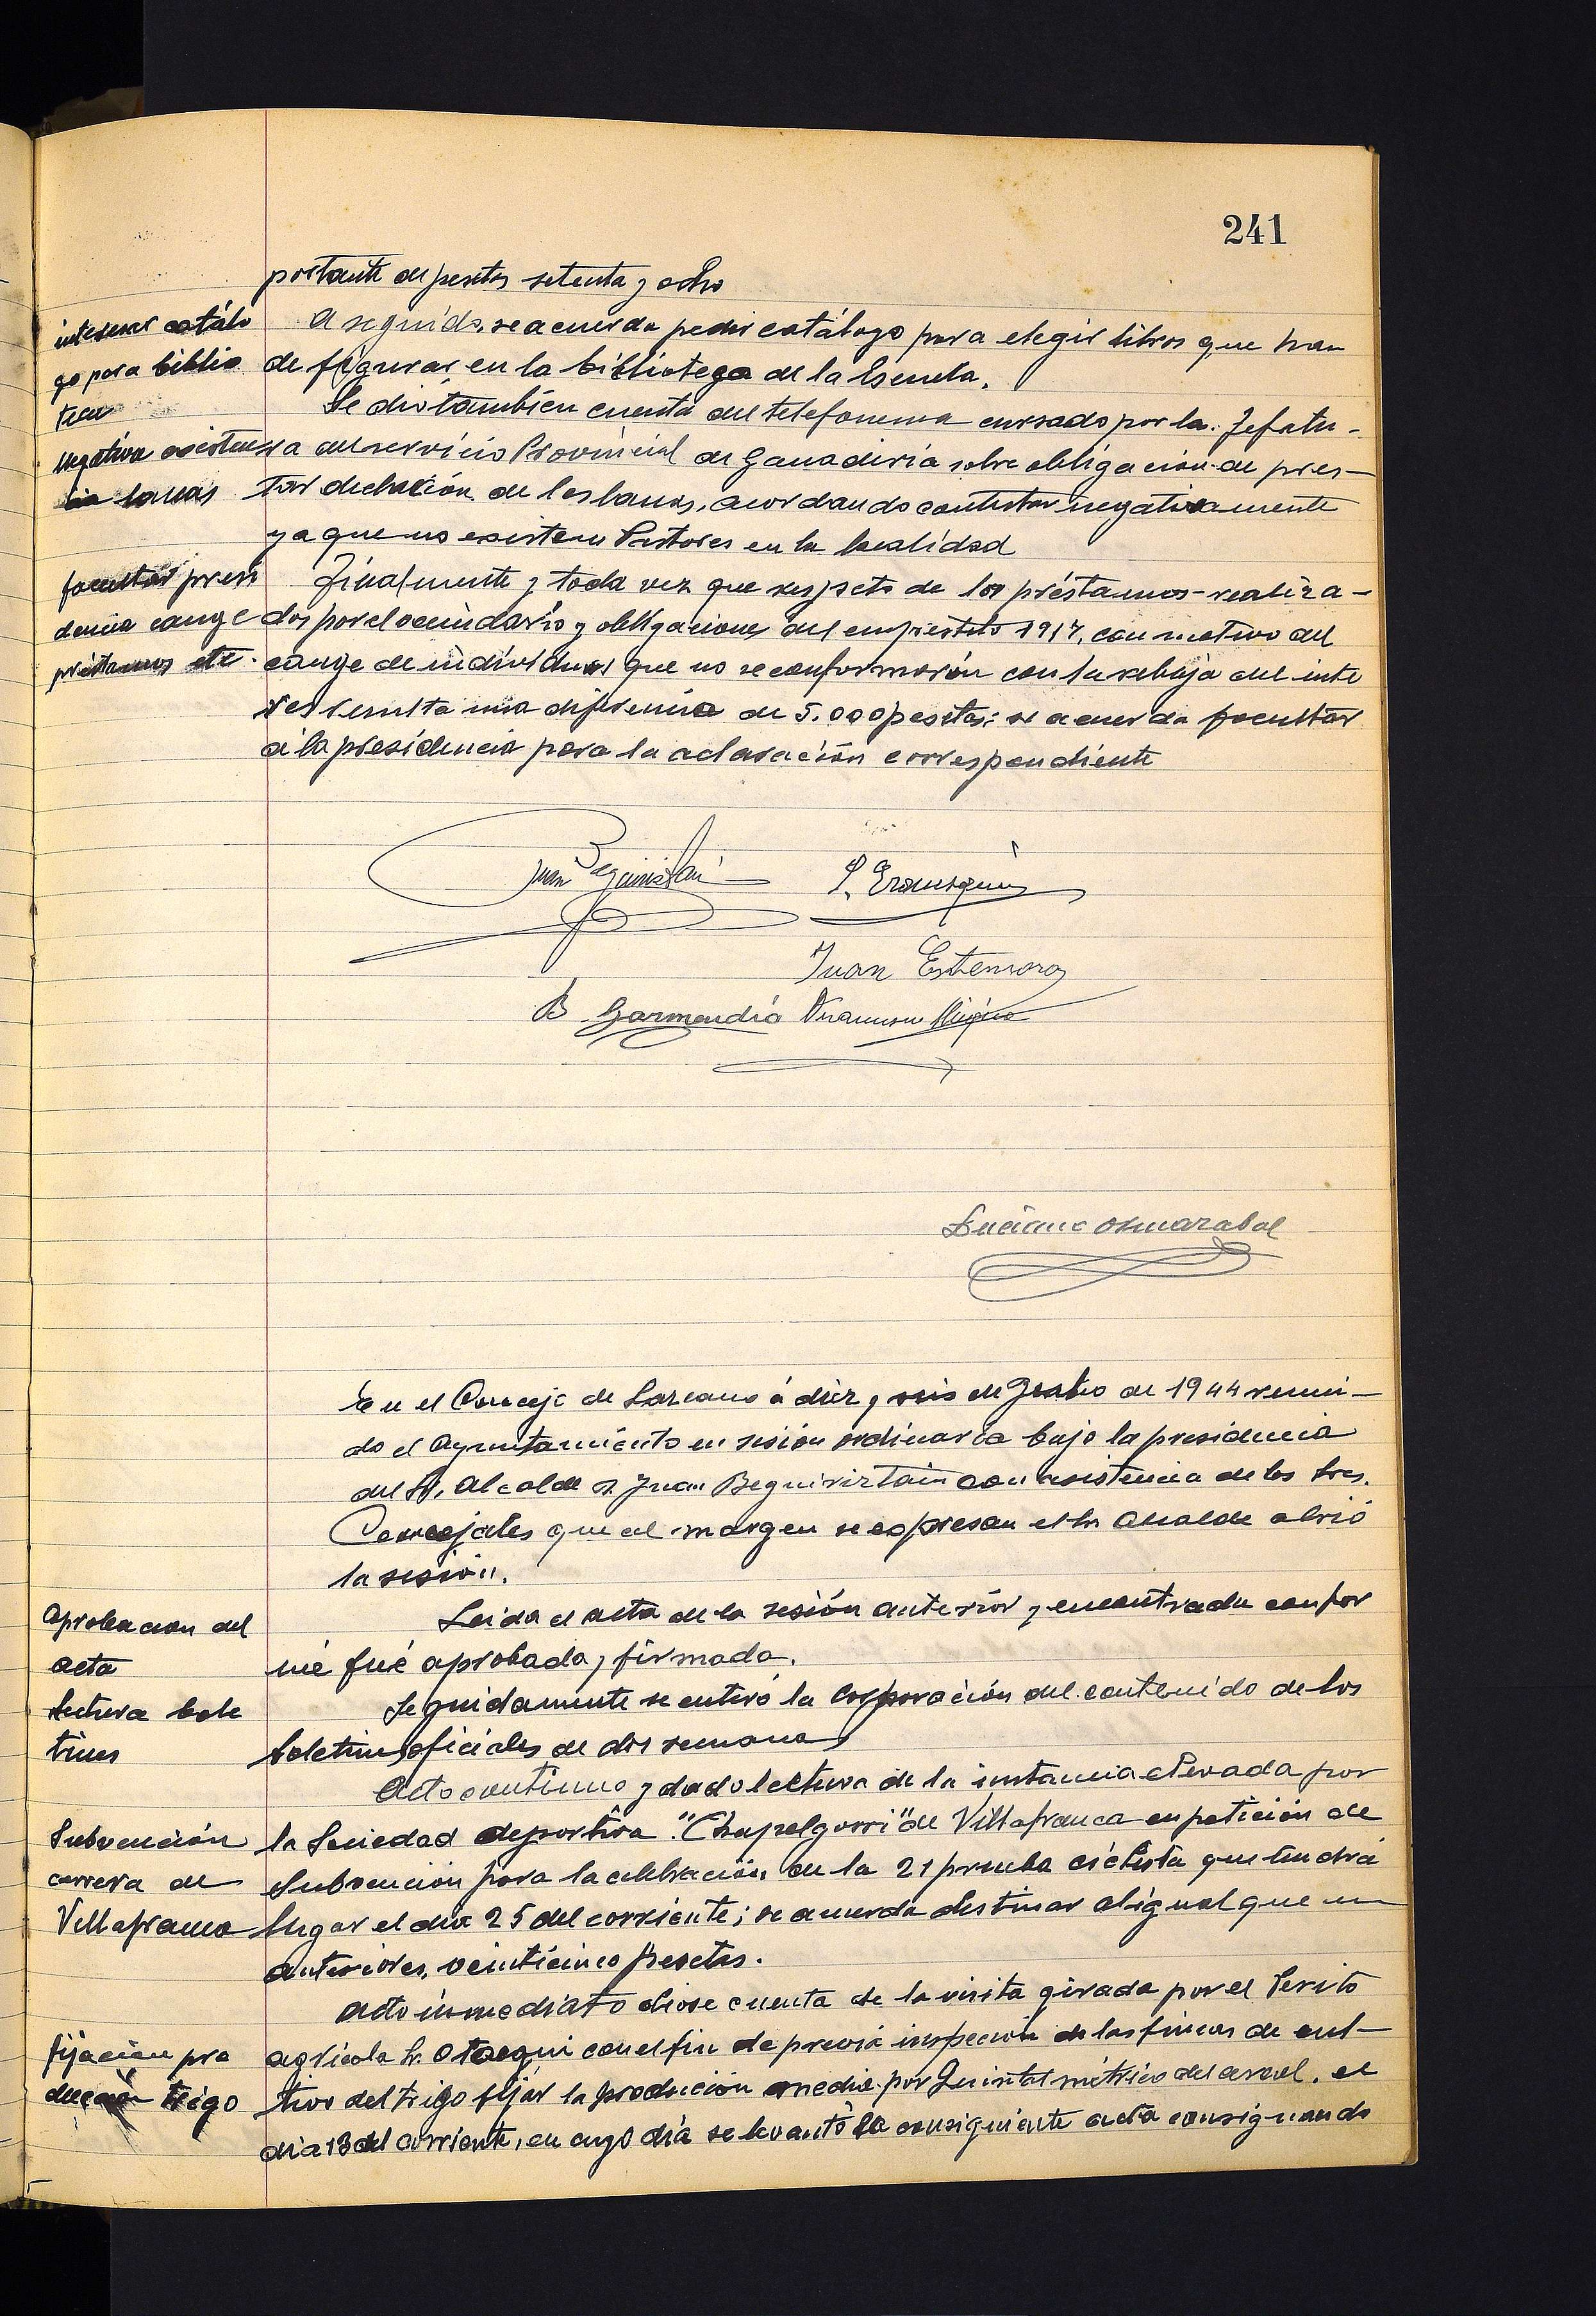 241
portante de pesetas setenta y ocho
interesar catálo
go para biblio
teca
A seguido, se acuerda pedir catálogo para elegir libros que han
de figurar en la bibliotega de la Escuela.
negativa existen
cia lanas
Se dió también cuenta del telefonema cursado por la Jefatu-
ra del servicio Provincial de Ganadería sobre obligacion de pres-
tar declación de las lanas, acordando contestar negativamente
ya que no existen Pastores en la localidad
facultar presi
dencia cange
préstamos etc.
Finalmente y toda vez que respeto de los préstamos realiza-
dos por el vecindario y obligaciones del emprestito 1917, con motivo del
cange de individuos que no se conformarón con la rebaja del inte
res resulta una diferencia de 5.000 pesetas: se acuerda facultar
a la presidencia para la aclaración correspondiente
Juan Beguiristain
P. Erausquin
Juan Estensoro
B Garmendia Francisco
Luciano
En el Concejo de Lazcano á diez y seis de Junio de 1944 reuni-
do el Ayuntamiento en sesión ordinaria bajo la presidencia
del Sr. Alcalde D. Juan Beguiristain con asistencia de los Sres.
Concejales que al margen se expresan el Sr Alcalde abrió
la sesión.
Aprobacion del
acta
Leida el acta de la sesión anterior y encontrada confor
me fué aprobada y firmada.
Lectura bole
tines
Seguidamente se enteró la Corporación del contenido de los
boletines oficiales de dos semanas
Subvención
carrera de
Villafranca
Acto continuo y dado lectura de la instancia elevada por
la Sociedad deportiva "Chapelgorri" de Villafranca en petición de
subvención para la celebración de la 21 prueba ciclista que tendrá
lugar el dia 25 del corriente; se acuerda destinar al igual que en
anteriores, veinticinco pesetas.
fijacion pro
duccion trigo
Acto inmediato diose cuenta de la visita girada por el Perito
agricola Sr. Otaegui con el fin de previa inspección de las fincas de cul-
tivo del trigo fijar la producción media por Quintal métrico del areal, el
dia 13 del corriente, en cuyo día se levantó la consiguiente acta consignando